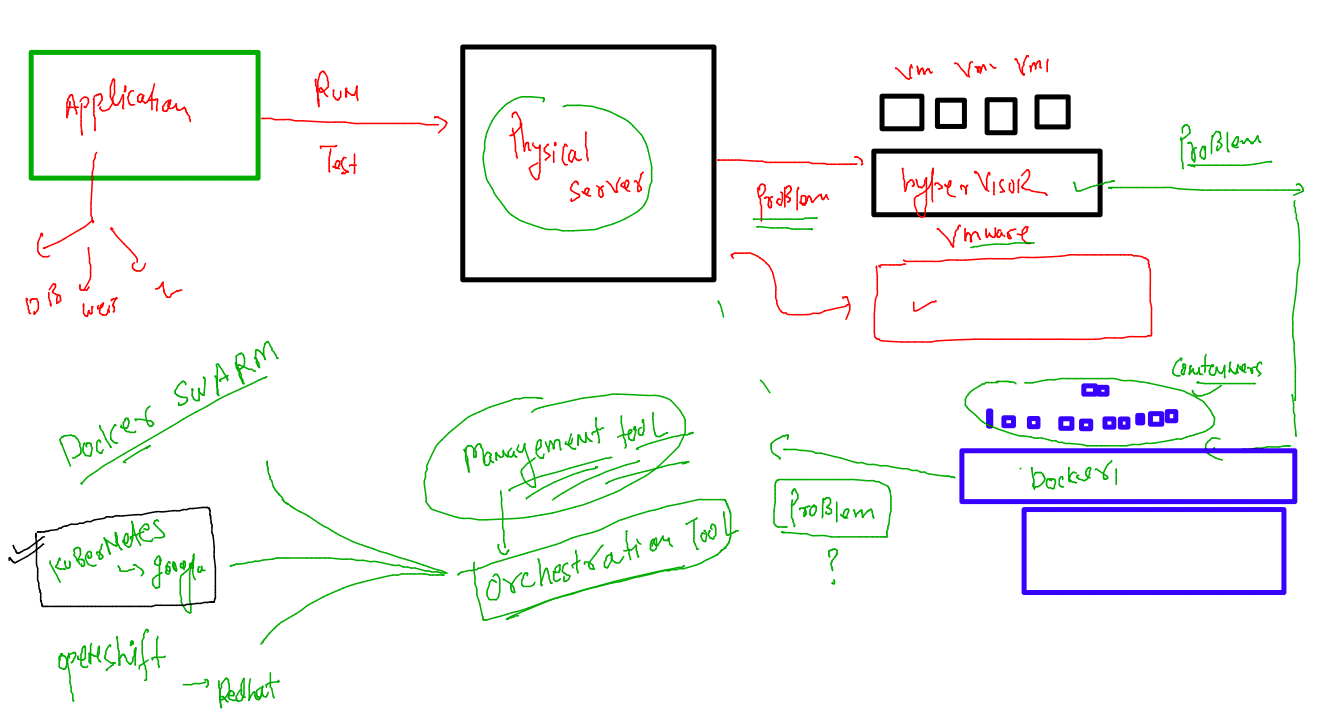 Application
Run
Test
DB
web
Physical
Server
Problem
Vm
Vm
Vm1
hyperVisor
Vmware
Problem
Containers
Docker1
Problem
?
Management tool
orchestration Tool
Docker SWARM
KuBerNetes
google
openshift
Redhat